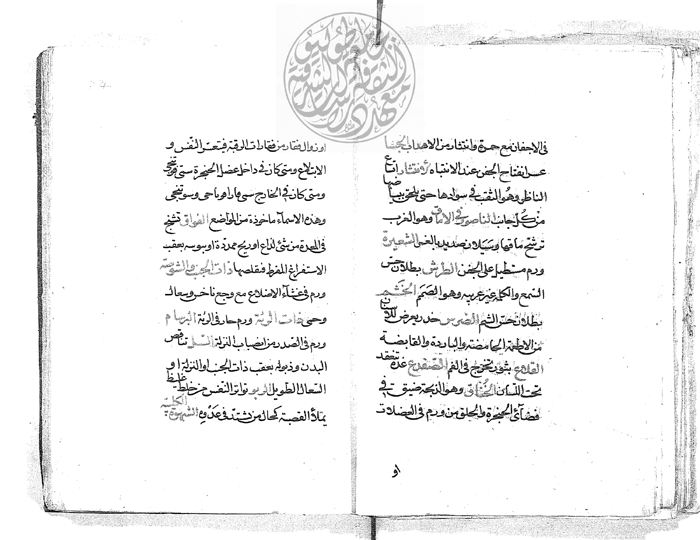 فى الاجفان مع حمرة وانتثار من الاهداب الجفا
عن انفتاح الجفن عند الانتباه الانتشار اتساع
الناظر وهو الثقب فى سوادها حتى يلحق بياضها
من كل جانب الناصور فى الاماق وهو الغرب
ترشح ماقها ويسيلان صديد بالغمز الشعيرة
ورم مستطيل على الجفن الطرش بطلان حس
السمع والكلية غير عريبه وهو الصمم الخشم
بطلان حس الشم الضرس خدر يعرض للأسنان
من الاطعمة الحامضة والباردة والقابضة
القلاع بثور تخرج فى الفم الضفدع غدة تنعقد
تحت اللسان الخناق وهو الذبحة ضيق فى
فضائى الحنجرة والحلق من ورم فى العضلات
او
او زوال فقار من فقارات الرقبة فيتعسر النفس و
الابتلاع ومتى كان فى داخل عضل الحنجرة سمى
ومتى كان فى الخارج سمى
وهذه الاسماء ماخوذة من المواضع الفواق تشنج
فى المعدة من شئ لذاع او ريح ممددة او يبوسه بعقب
الاستفراغ المفرط فقلصها ذات الجنب والشوصة
ورم فى غشاء الاضلاع مع وجع ناخس وسعال
وحمى ذات الرئة ورم حار فى الرئة البرسام
ورم فى الصدر من انصباب النزلة السل تناقص
البدن وذبوله بعقب ذات الجنب او النزلة او
السعال الطويل الربو تواتر النفس من خلط غليظ
يملأ القصبة كحال من يشتد فى عدوه الشهوة الكلبية